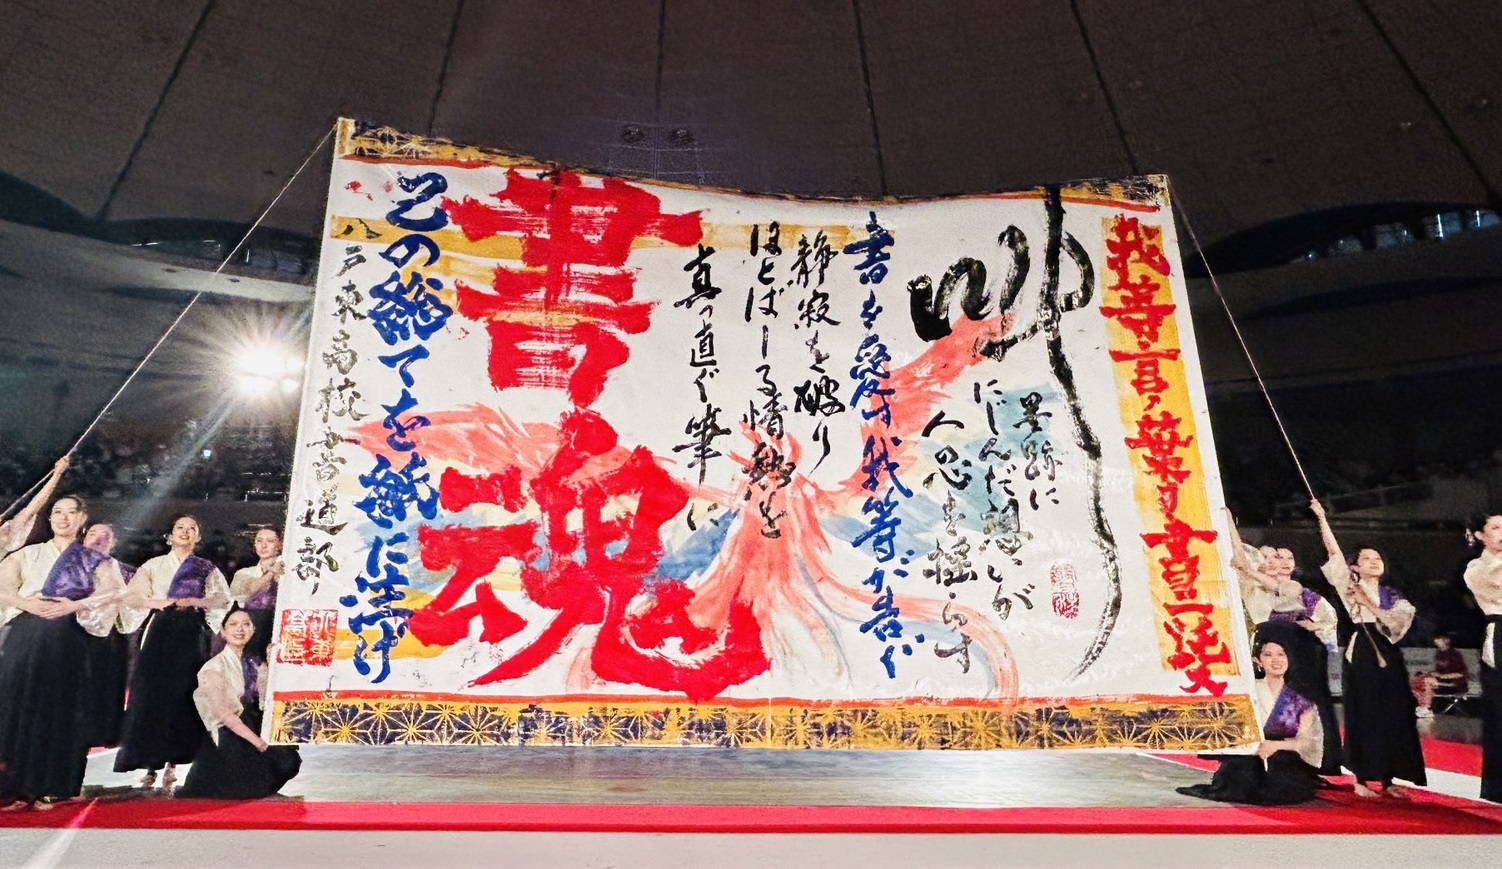 我等言ノ葉ヲ書ニ託ス
墨跡に
にじんだ想いが
人の心を揺らす
書を愛す我等が
静寂を破り
ほとばしる情熱を
真っ直ぐ筆に
書魂
己の総てを紙に注げ
八戸東高校書道部